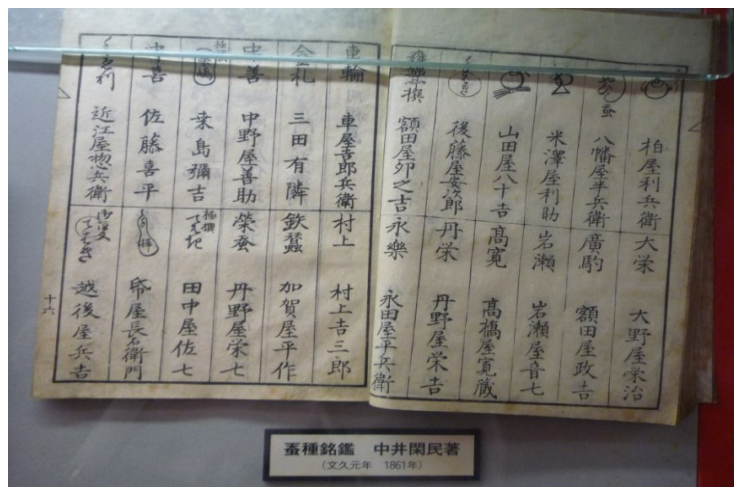 柏屋利兵衛
大栄
大野屋栄治
八幡屋半兵衛
廣駒
額田屋政吉
米澤屋利助
岩瀬
岩瀬屋音七
山田屋八十吉
高寛
高橋屋寛蔵
後藤屋安次郎
丹栄
丹野屋栄吉
撰
額田屋卯之吉
永樂
永田屋平兵衛
車輪
車屋吉郎兵衛
村上
村上吉三郎
金札
三田有隣
鉄蠶
加賀屋平作
中善
中野屋善助
榮蚕
丹野屋栄七
桒島彌吉
極撰
田中屋佐七
中喜
佐藤喜平
帋屋長右衛門
近江屋惣兵衛
越後屋兵吉
十六
蚕種銘鑑 中井閑民著
(文久元年 1861年)